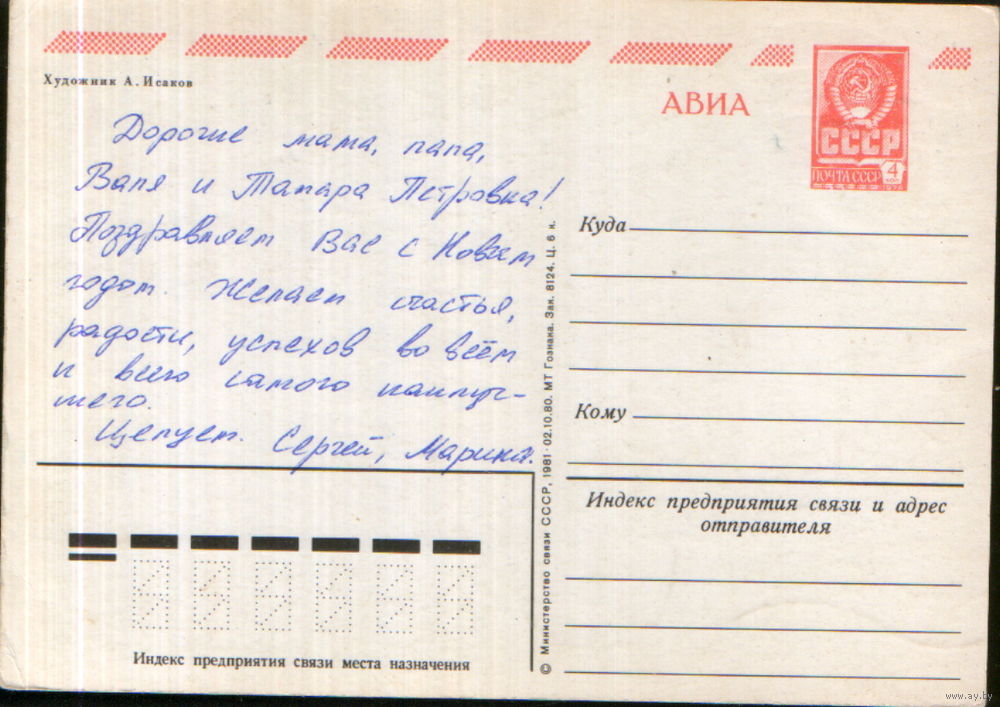 Художник А. Исаков
АВИА
СССР
ПОЧТА СССР
4
КОП
1978
Дорогие мама, папа,
Валя и Тамара Петровна!
Поздравляем Вас с Новым
годом. Желаем счастья,
радости, успехов во всём
и всего самого наилуч-
шего.
Целуем. Сергей, Марина.
Куда
Кому
Индекс предприятия связи и адрес
отправителя
© Министерство связи СССР, 1981 · 02.10.80. МТ Гознака. Зак. 8124. Ц. 6 к.
Индекс предприятия связи места назначения
www.ay.by